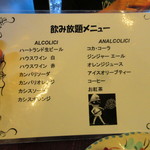 飲み放題メニュー
ALCOLICI
ハートランド生ビール
ハウスワイン 白
ハウスワイン 赤
カンパリソーダ
カンパリオレンジ
カシスソーダ
カシスオレンジ
ANALCOLICI
コカ・コーラ
ジンジャー エール
オレンジジュース
アイスオリーブティー
コーヒー
お紅茶